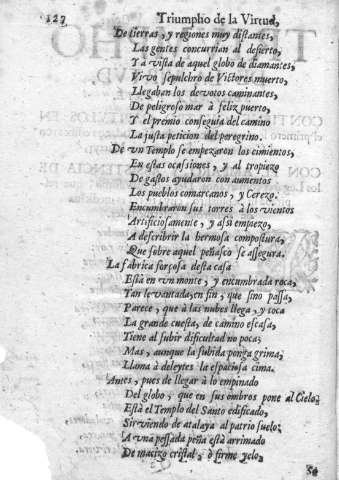 127 Triumpho de la Virtud,
De tierras, y regiones muy distantes,
Las gentes concurrian al desierto,
Y à vista de aquel globo de diamantes,
Vivo sepulchro de Victores muerto,
Llegaban los devotos caminantes,
De peligroso mar à feliz puerto,
Y el premio conseguia del camino
La justa peticion del peregrino.
De vn Templo se empezaron los cimientos,
En estas ocassiones, y al tropiezo
De gastos ayudaron con aumentos
Los pueblos comarcanos, y Cerezo.
Encumbraron sus torres à los vientos
Artificiosamente, y assi empiezo,
A describrir la hermosa compostura,
Que sobre aquel peñasco se assegura.
La fabrica forçosa desta casa
Està en vn monte, y encumbrada roca,
Tan levantada, en fin, que sino passa,
Parece, que à las nubes llega, y toca
La grande cuesta, de camino escasa,
Tiene al subir dificultad no poca;
Mas, aunque la subida ponga grima,
Llama à deleytes la espaciosa cima.
Antes, pues de llegar à lo empinado
Del globo, que en sus ombros pone al Cielo;
Està el Templo del Santo edificado,
Sirviendo de atalaya al patrio suelo;
A vna pessada peña està arrimado
De macizo cristal, ò firme yelo,
Se